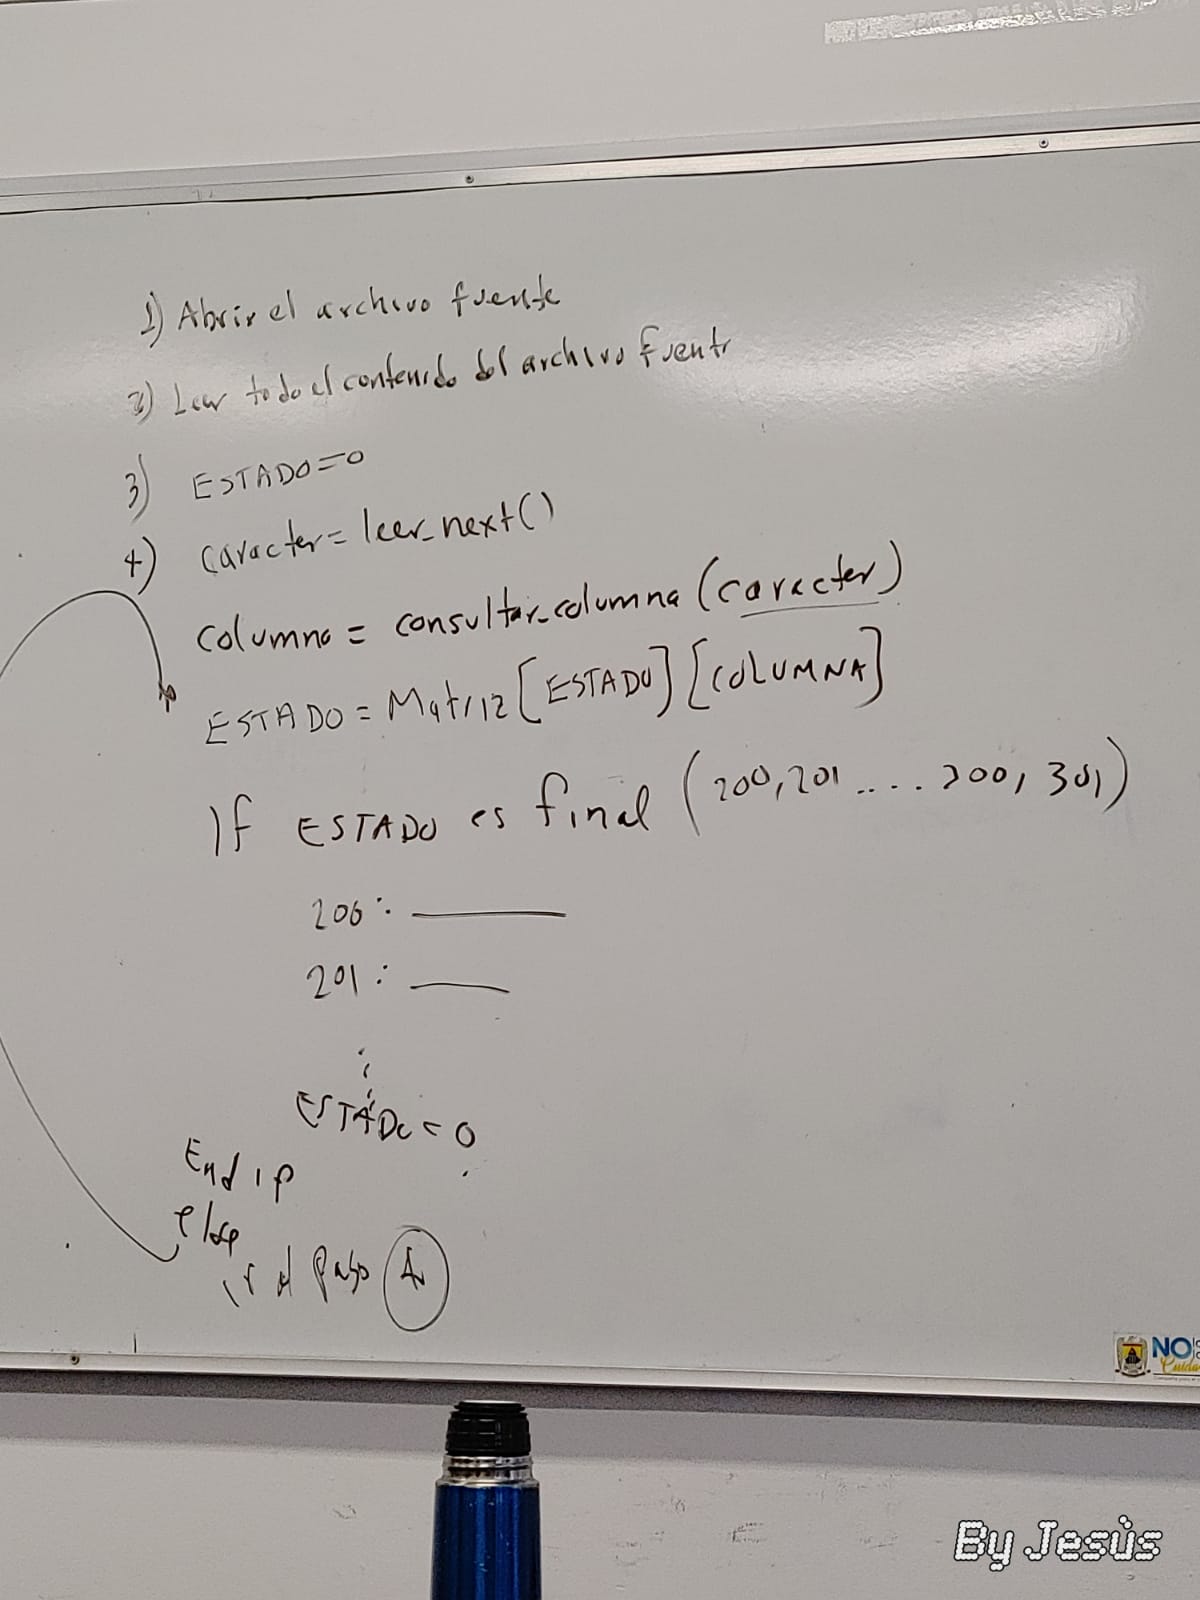 1) Abrir el archivo fuente
2) Leer todo el contenido del archivo fuente
3) ESTADO=0
4) caracter= leer_next()
columna = consultar_columna (caracter)
ESTADO = Matriz [ESTADO] [COLUMNA]
If ESTADO es final (200, 201 .... 300, 301)
200:
201:
ESTADO = 0
End if
else
ir al Paso 4
NO
By Jesús